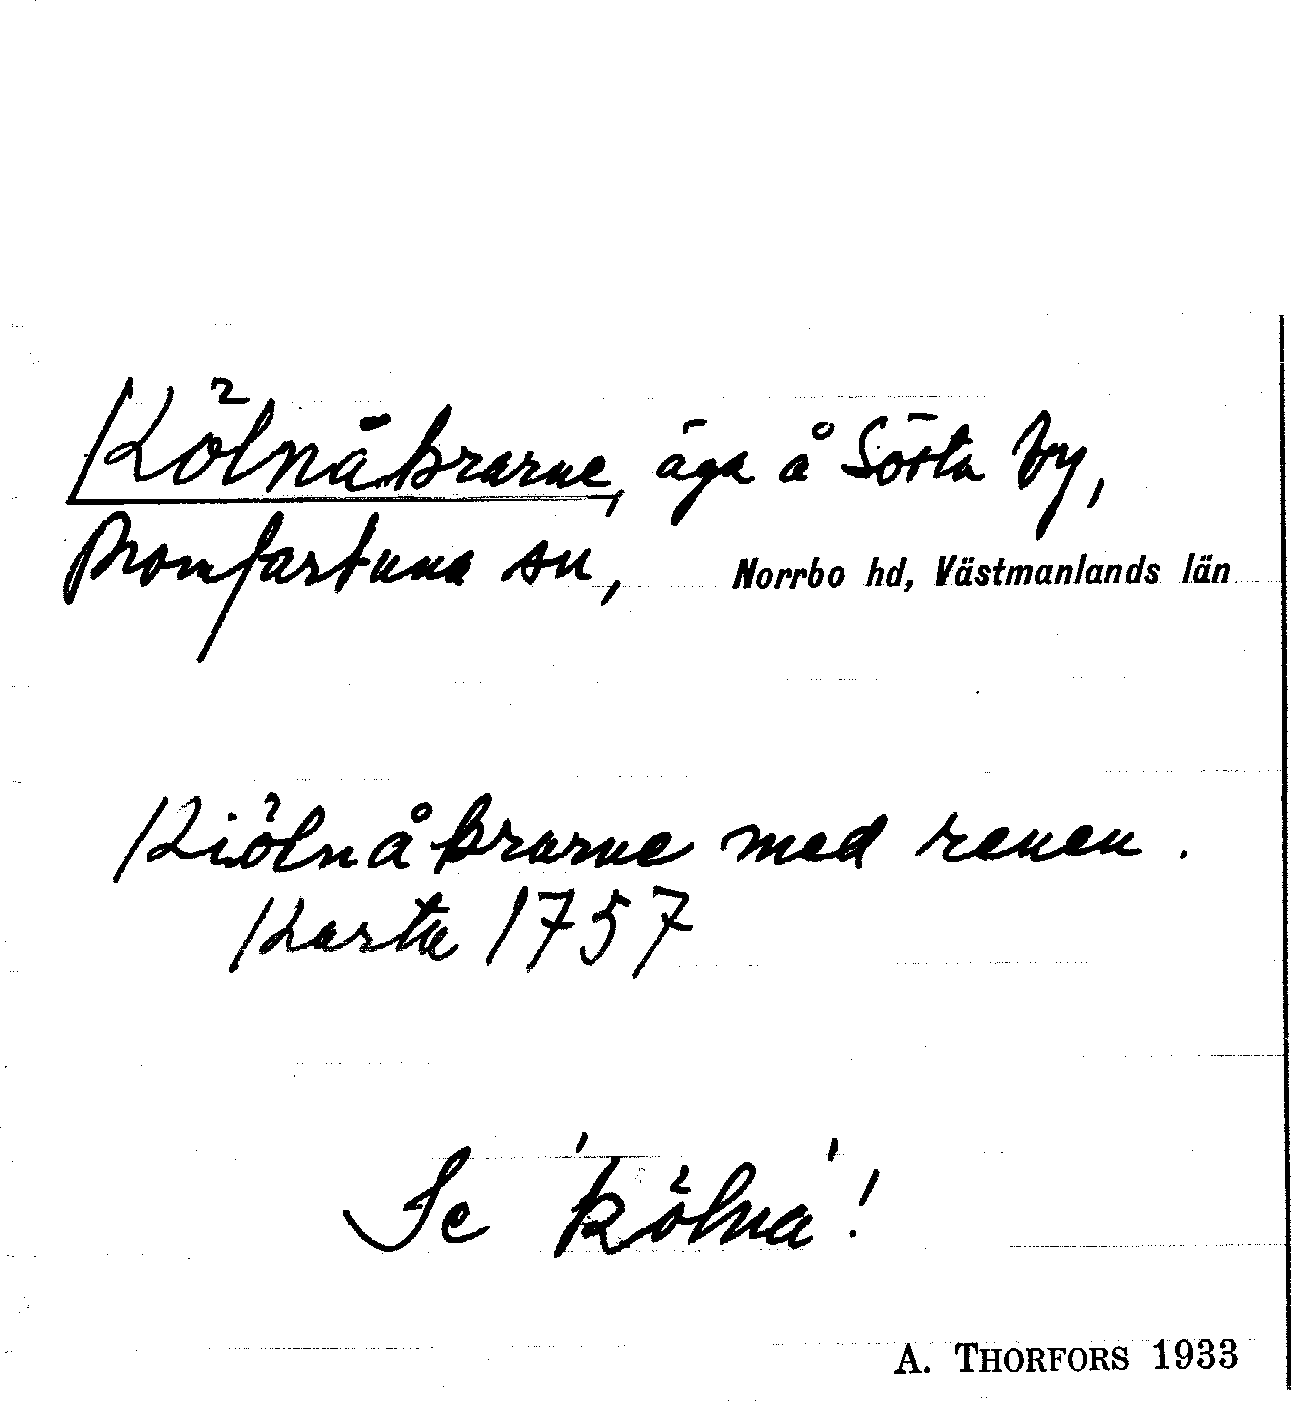 Kölnåkrarne, äga å Sörta by,
Romfartuna sn, Norrbo hd, Västmanlands län
Kiölnåkrarne med renen.
Karta 1757
Se 'kölna'!
A. THORFORS 1933